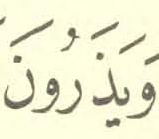 وَيَذَرُونَ